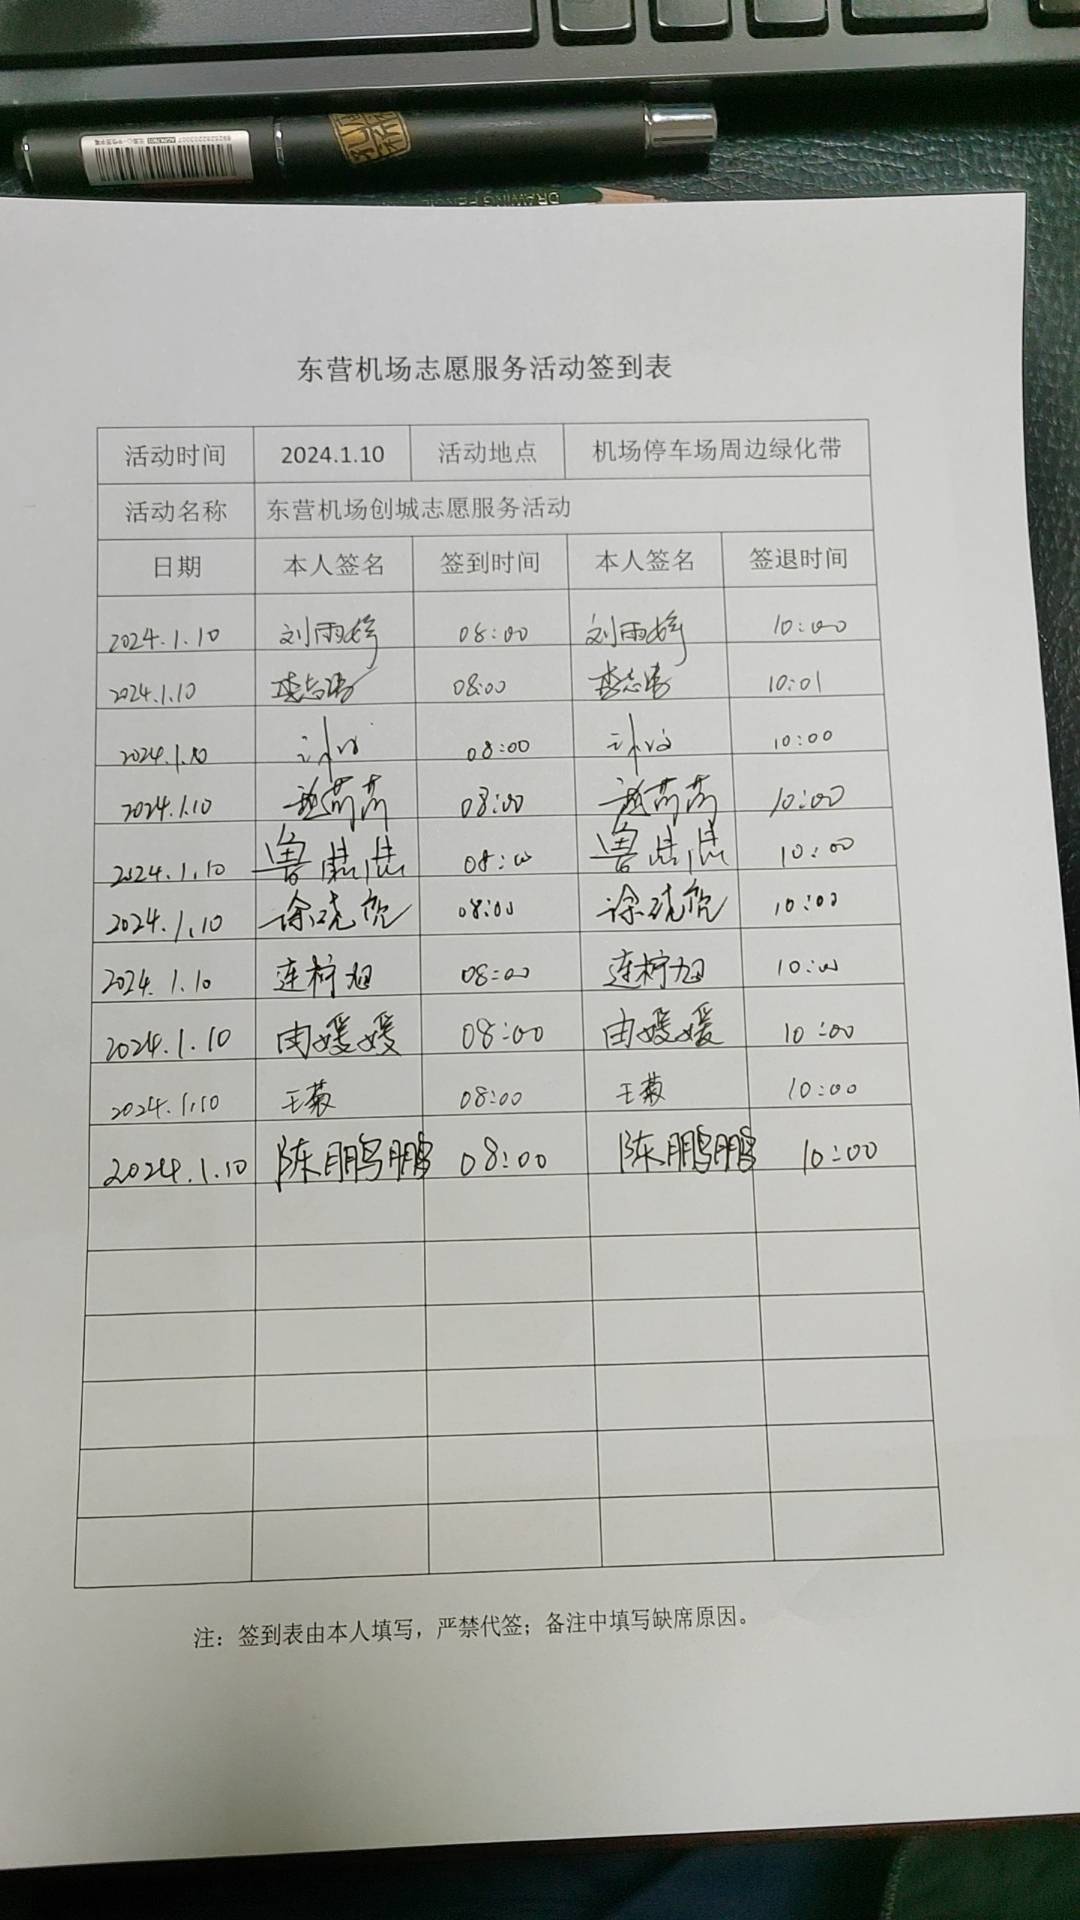 DRAWING PENCIL
东营机场志愿服务活动签到表
活动时间 2024.1.10 活动地点 机场停车场周边绿化带
活动名称 东营机场创城志愿服务活动
日期 本人签名 签到时间 本人签名 签退时间
2024.1.10 刘雨婷 08:00 刘雨婷 10:00
2024.1.10 李志涛 08:00 李志涛 10:01
2024.1.10 08:00 10:00
2024.1.10 08:00 10:00
2024.1.10 鲁 08:00 鲁 10:00
2024.1.10 徐晓 08:00 徐晓 10:00
2024.1.10 连柠旭 08:00 连柠旭 10:00
2024.1.10 由媛媛 08:00 由媛媛 10:00
2024.1.10 王菊 08:00 王菊 10:00
2024.1.10 陈鹏鹏 08:00 陈鹏鹏 10:00
注：签到表由本人填写，严禁代签；备注中填写缺席原因。